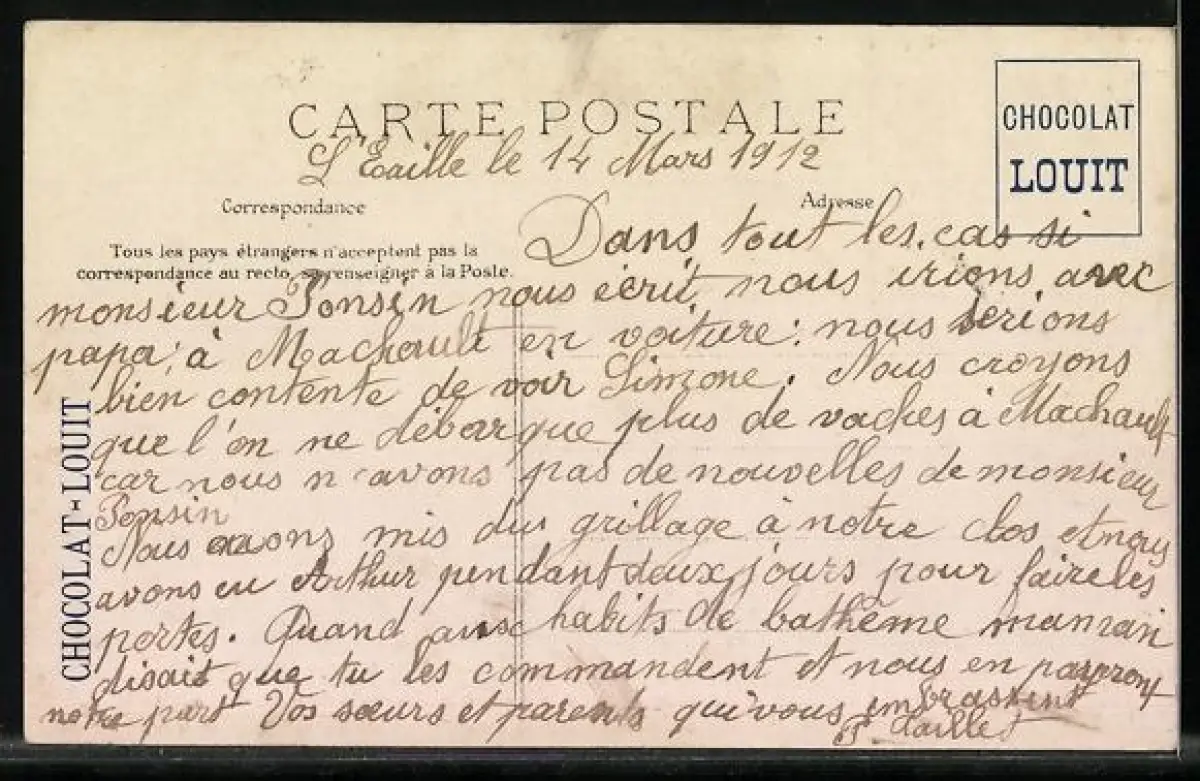 CARTE POSTALE
CHOCOLAT
LOUIT
L'Ecaille le 14 Mars 1912
Correspondance
Adresse
Tous les pays étrangers n'acceptent pas la
correspondance au recto, se renseigner à la Poste.
Dans tout les cas si
monsieur Ponsin nous écrit, nous irions avec
papa, à Machault en voiture: nous serions
bien contente de voir Simone. Nous croyons
que l'on ne débarque plus de vaches à Machault
car nous n'avons pas de nouvelles de monsieur
Ponsin
Nous avons mis du grillage à notre clos et nous
avons eu Arthur pendant deux jours pour faire les
portes. Quand aux habits de bathême maman
disait que tu les commandent et nous en payeront
notre part Vos sœurs et parents qui vous embrassent
CHOCOLAT-LOUIT